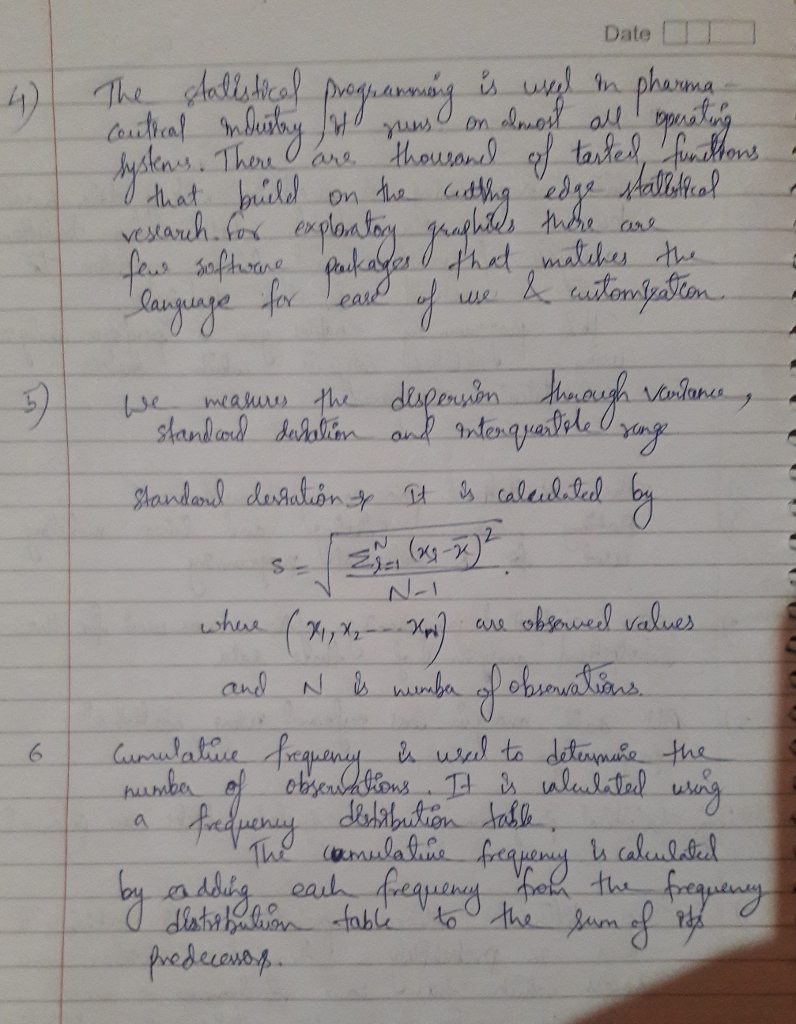 Date
4) The statistical programming is used in pharma-
ceutical industry, It runs on almost all operating
systems. There are thousand of tested functions
that build on the cutting edge statistical
research. for exploratory graphics there are
few software packages that matches the
language for ease of use & customization.
5) We measures the dispersion through variance,
standard deviation and interquartile range
Standard deviation → It is calculated by
s = √(Σᵢ₌₁ᴺ (xᵢ - x̄)² / N-1).
where (x₁, x₂ --- xₙ) are observed values
and N is number of observations.
6 Cumulative frequency is used to determine the
number of observations. It is calculated using
a frequency distribution table.
The cumulative frequency is calculated
by adding each frequency from the frequency
distribution table to the sum of its
predecessors.